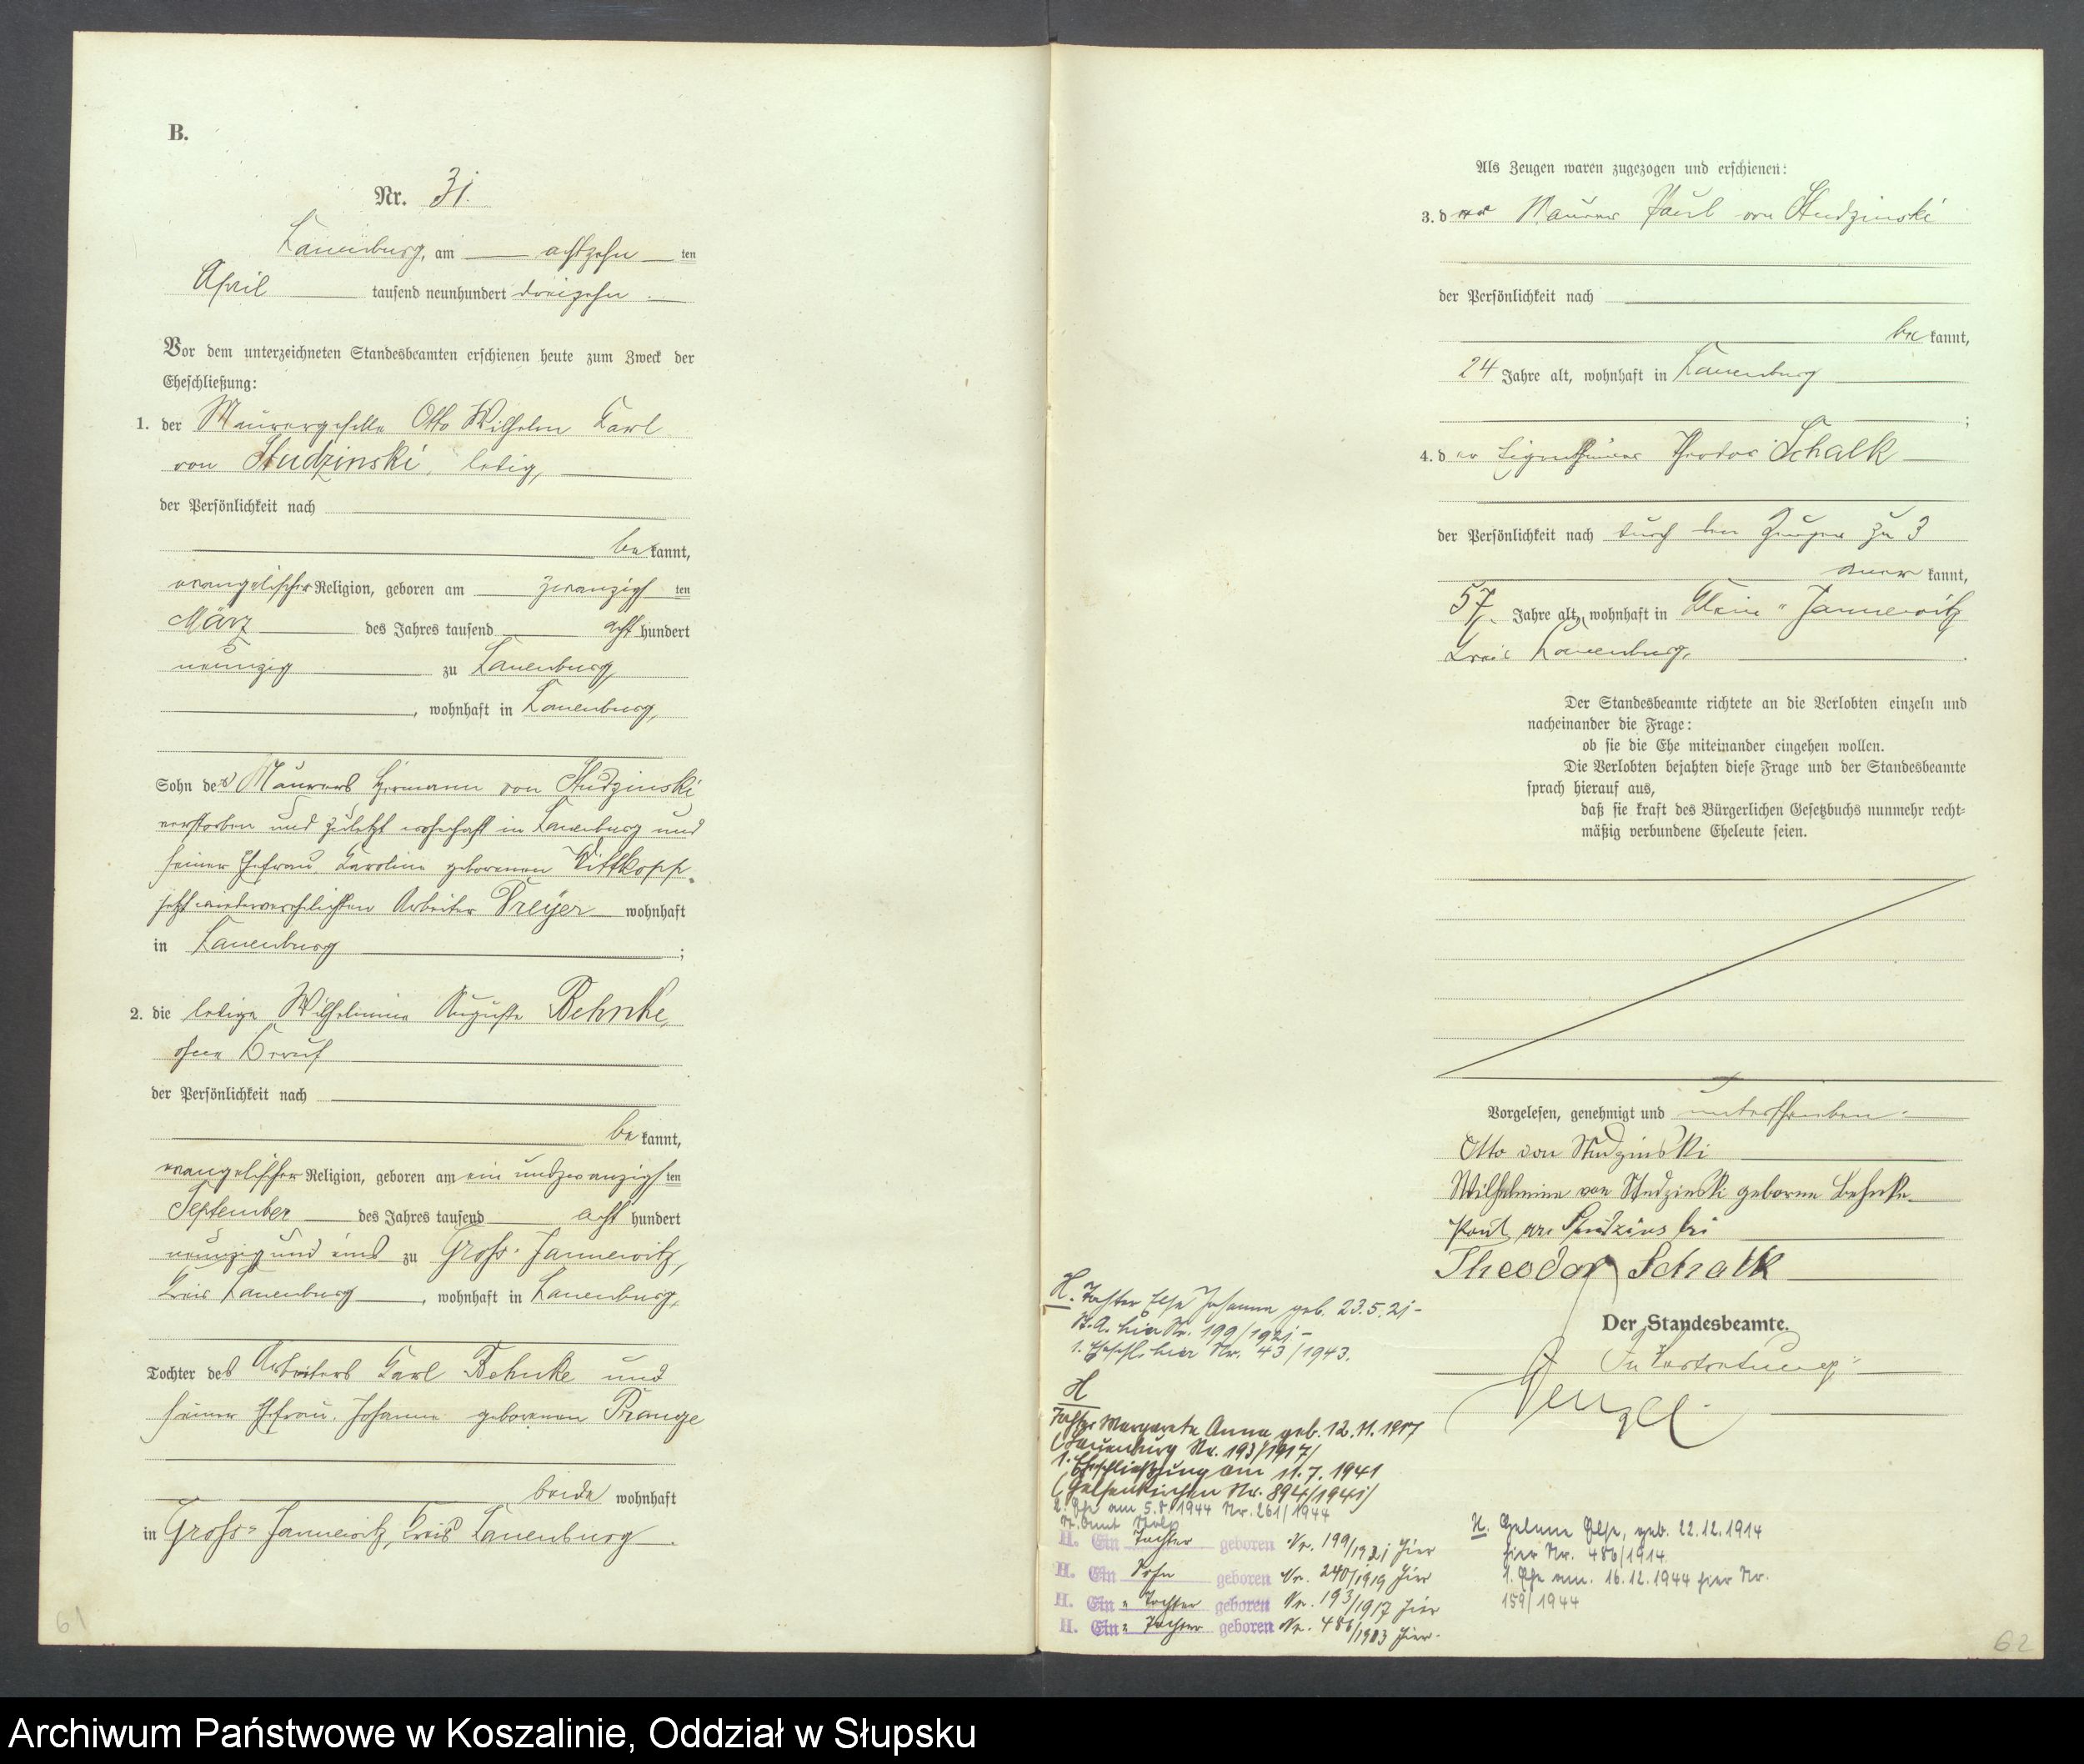 B.
Nr. 31.
Lauenburg, am achtzehn ten
April tausend neunhundert dreizehn.
Vor dem unterzeichneten Standesbeamten erschienen heute zum Zweck der
Eheschließung:
1. der Maurergeselle Otto Wilhelm Karl
von Studzinski, ledig,
der Persönlichkeit nach
be kannt,
evangelischer Religion, geboren am zwanzigs ten
März des Jahres tausend acht hundert
neunzig zu Lauenburg,
, wohnhaft in Lauenburg,
Sohn des Maurers Hermann von Studzinski
verstorben und zuletzt wohnhaft in Lauenburg und
seiner Ehefrau Karoline geborenen Wittkopp,
jetzt wiederverehelichten Arbeiter Dreyer wohnhaft
in Lauenburg ;
2. die ledige Wilhelmine Auguste Behnke,
ohne Beruf
der Persönlichkeit nach
be kannt,
evangelischer Religion, geboren am ein und zwanzigs ten
September des Jahres tausend acht hundert
neunzig und eins zu Gross-Jannewitz,
Kreis Lauenburg , wohnhaft in Lauenburg,
Tochter des Arbeiters Karl Behnke und
seiner Ehefrau Johanna geborenen Prange
beide wohnhaft
in Gross-Jannewitz, Kreis Lauenburg.
61
Als Zeugen waren zugezogen und erschienen:
3. der Maurer Paul von Studzinski
der Persönlichkeit nach
be kannt,
24 Jahre alt, wohnhaft in Lauenburg
;
4. der Eigenthümer Theodor Schalk
der Persönlichkeit nach durch den Zeugen zu 3
aner kannt,
57 Jahre alt, wohnhaft in Klein-Jannewitz
Kreis Lauenburg.
Der Standesbeamte richtete an die Verlobten einzeln und
nacheinander die Frage:
ob sie die Ehe miteinander eingehen wollen.
Die Verlobten bejahten diese Frage und der Standesbeamte
sprach hierauf aus,
daß sie kraft des Bürgerlichen Gesetzbuchs nunmehr recht-
mäßig verbundene Eheleute seien.
Vorgelesen, genehmigt und unterschrieben.
Otto von Studzinski
Wilhelmine von Studzinski geborne Behnke.
Paul von Studzinski
Theodor Schalk
Der Standesbeamte.
In Vertretung:
H. Tochter Else Johanna geb. 23.5.21-
St.A. hier Nr. 199/1921-
1. Eheschl. hier Nr. 43/1943.
H
Tochter Margarete Anna geb. 12.11.1917
(Lauenburg Nr. 193/1917/
1. Eheschließung am 11.7.1941
(Gelsenkirchen Nr. 894/1941/
2. Ehe am 5.8.1944 Nr. 261/1944
St.Amt Stolp
H. Ein Tochter geboren Nr. 199/1921 hier
H. Ein Sohn geboren Nr. 240/1919 hier
H. Ein e Tochter geboren Nr. 193/1917 hier
H. Ein e Tochter geboren Nr. 486/1913 hier.
H. Else, geb. 22.12.1914
hier Nr. 486/1914
1. Ehe am. 16.12.1944 hier Nr.
159/1944
62
Archiwum Państwowe w Koszalinie, Oddział w Słupsku